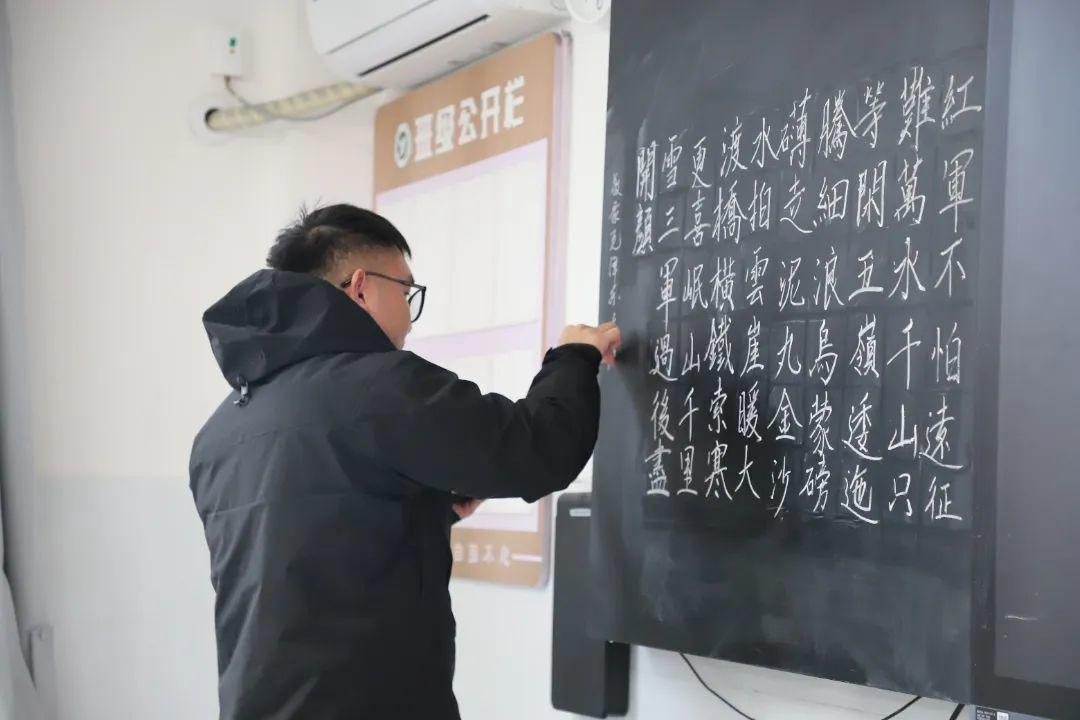 班级公开栏
紅軍不怕遠征
難萬水千山只
等閑五嶺逶迤
騰細浪烏蒙磅
礴走泥丸金沙
水拍雲崖暖大
渡橋橫鐵索寒
更喜岷山千里
雪三軍過後盡
開顏